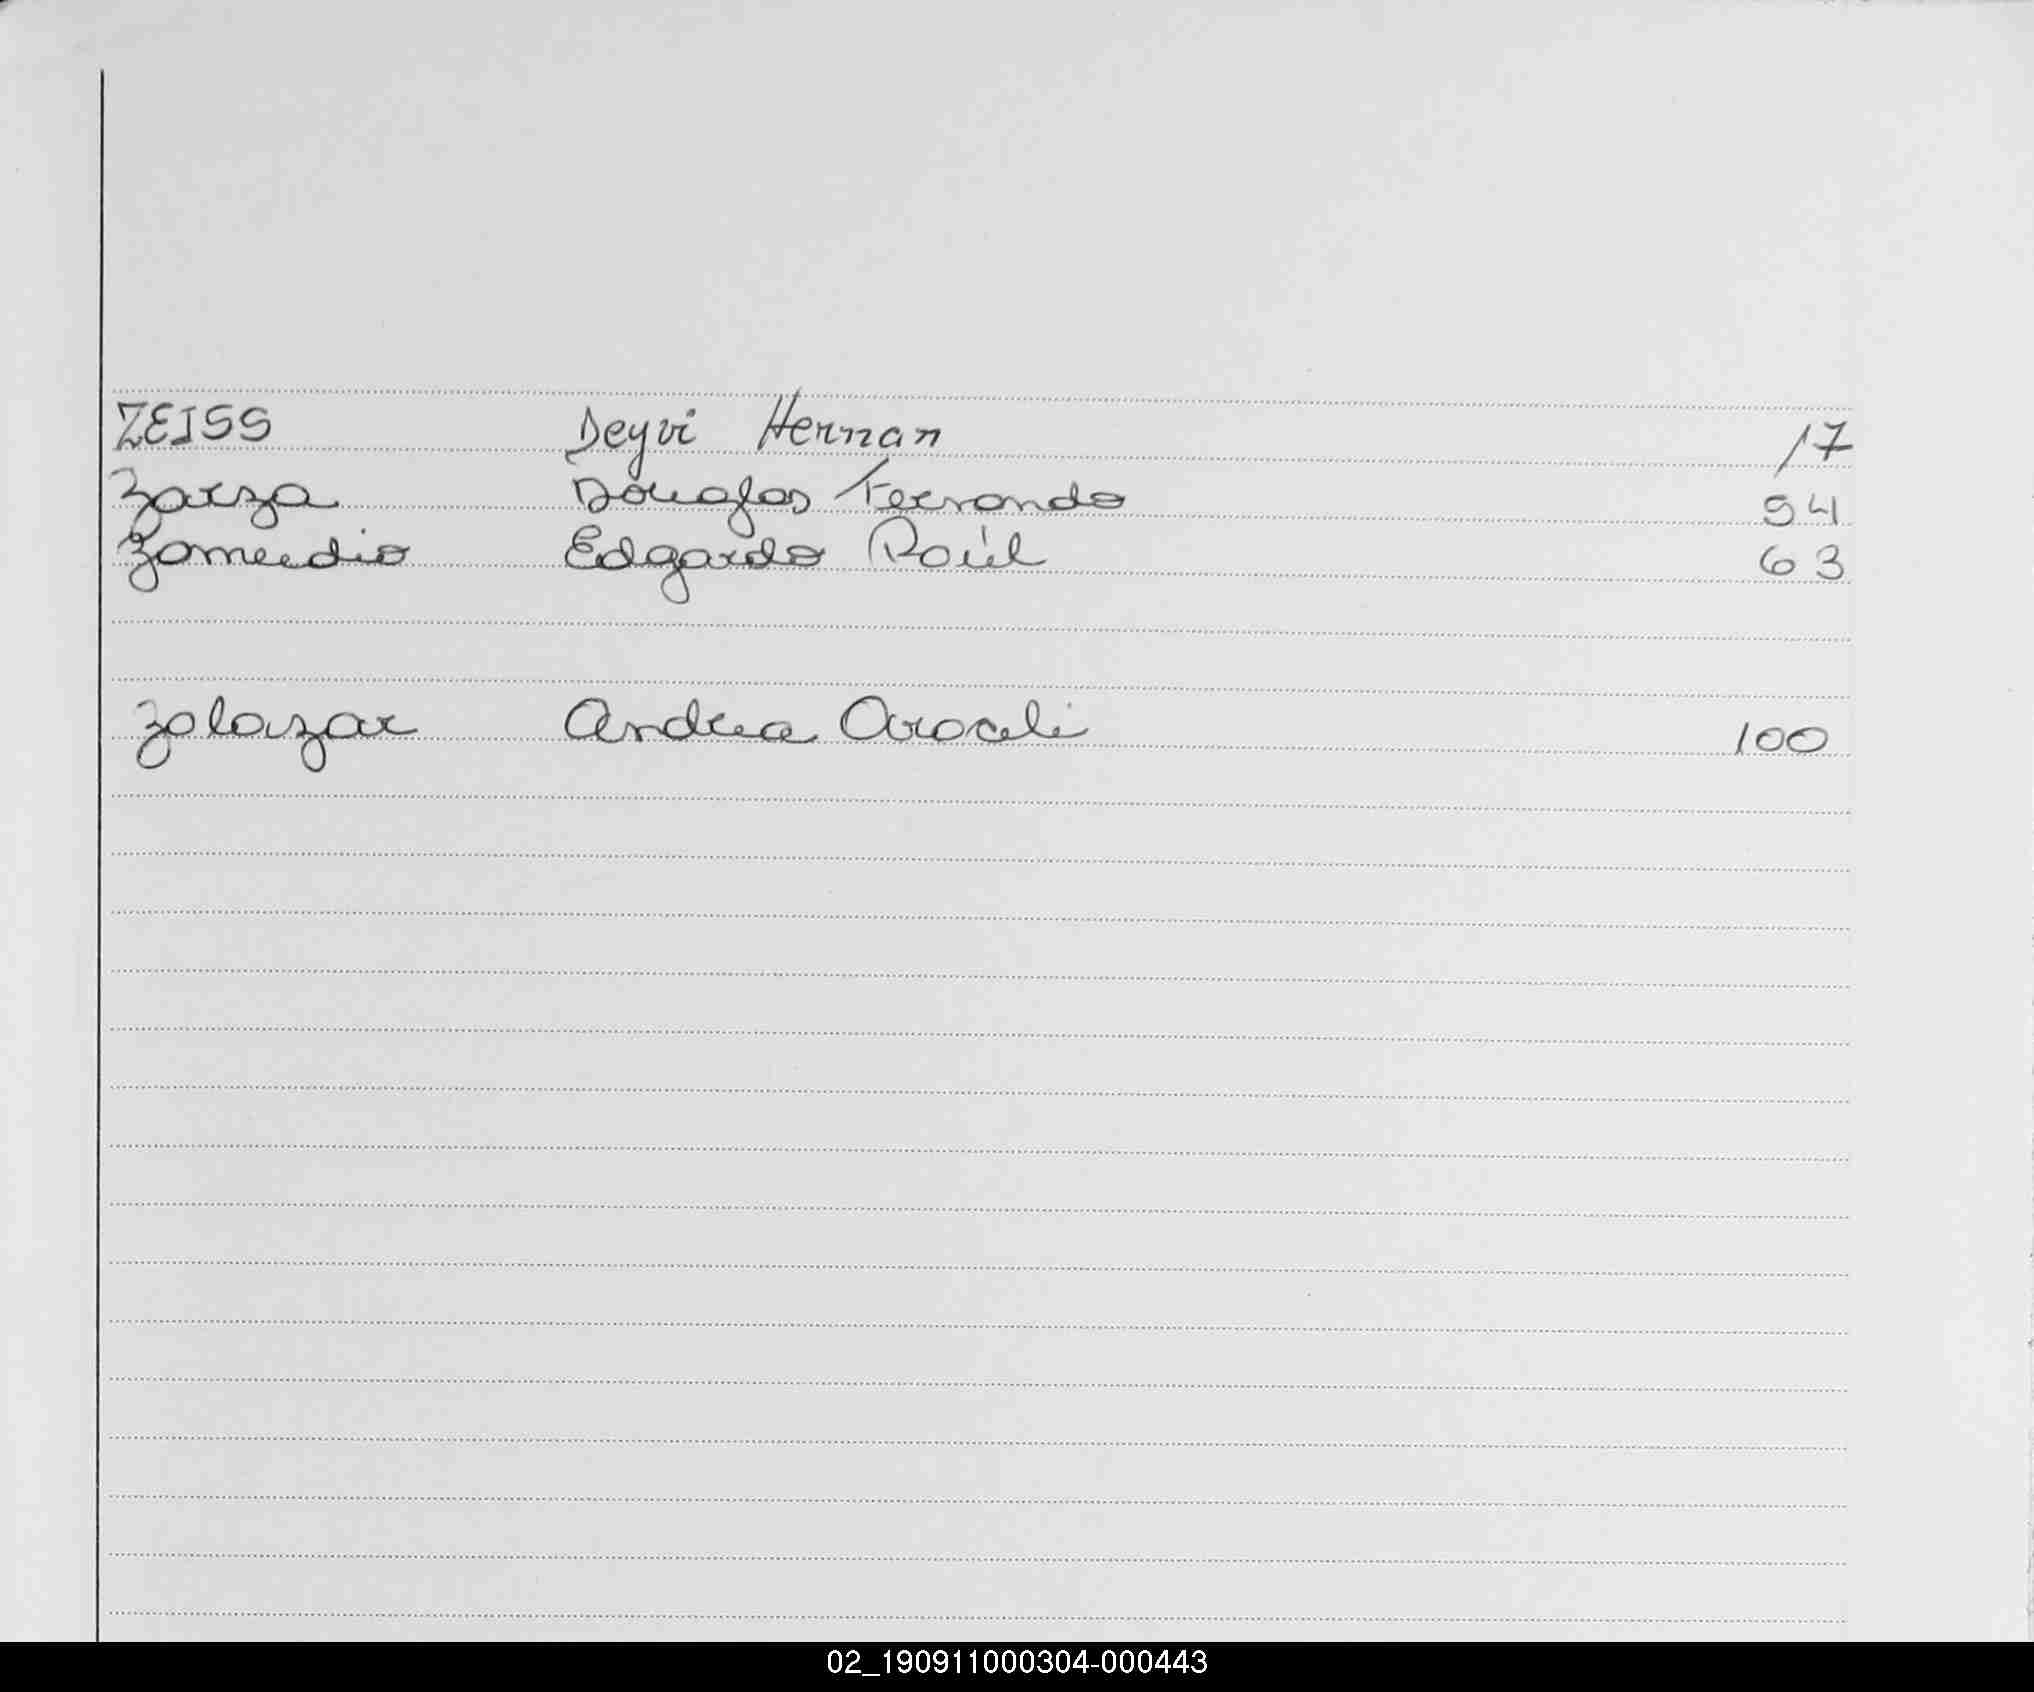 ZEISS Deyvi Hernan 17
Zarza Douglas Fernando 54
Zamudio Edgardo Raúl 63
Zalazar Andrea Araceli 100
02_190911000304-000443